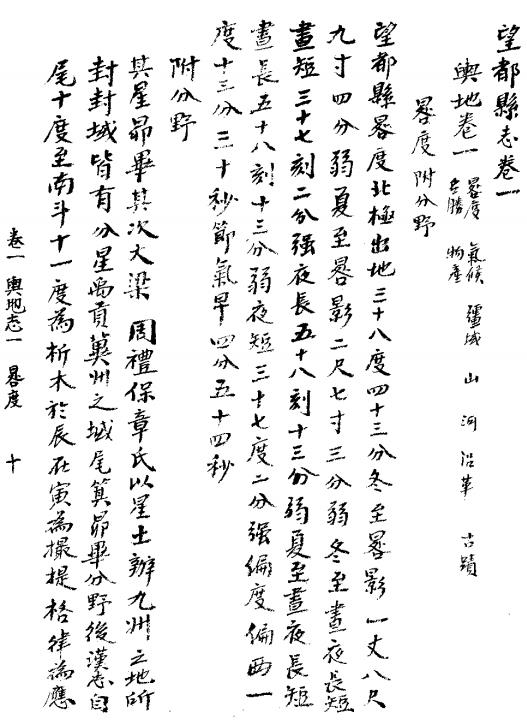 望都縣志卷一
輿地卷一 晷度 氣候 疆域 山 河 沿革 古蹟
名勝 物產
晷度附分野
望都縣晷度北極出地三十八度四十三分冬至晷影一丈八尺
九寸四分弱夏至晷影二尺七寸三分弱冬至晝夜長短
晝短三十七刻二分强夜長五十八刻十三分弱夏至晝夜長短
晝長五十八刻十三分弱夜短三十七度二分强偏度偏西一
度十三分三十秒節氣早四分五十四秒
附分野
其星昴畢其次大梁 周禮保章氏以星土辨九州之地所
封封域皆有分星禹貢冀州之域尾箕昴畢分野後漢志自
尾十度至南斗十一度為析木於辰在寅為攝提格律為應
卷一 輿地志一 晷度 十